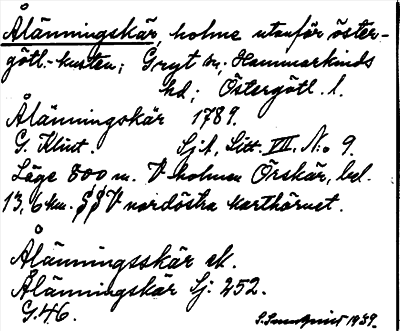 Ålänningskär, holme utanför öster-
götl.-kusten; Gryt sn, Hammarkinds
hd; Östergötl. l.
Ålänningskär 1789.
G. Klint. Sjk. Litt. VII. No 9.
Läge 800 m. V holmen Örskär, bel.
13,6 km. SSV nordöstra karthörnet.
Ålänningsskär ek.
Ålänningskär Sj. 252.
G46.
S. Sundquist 1939.